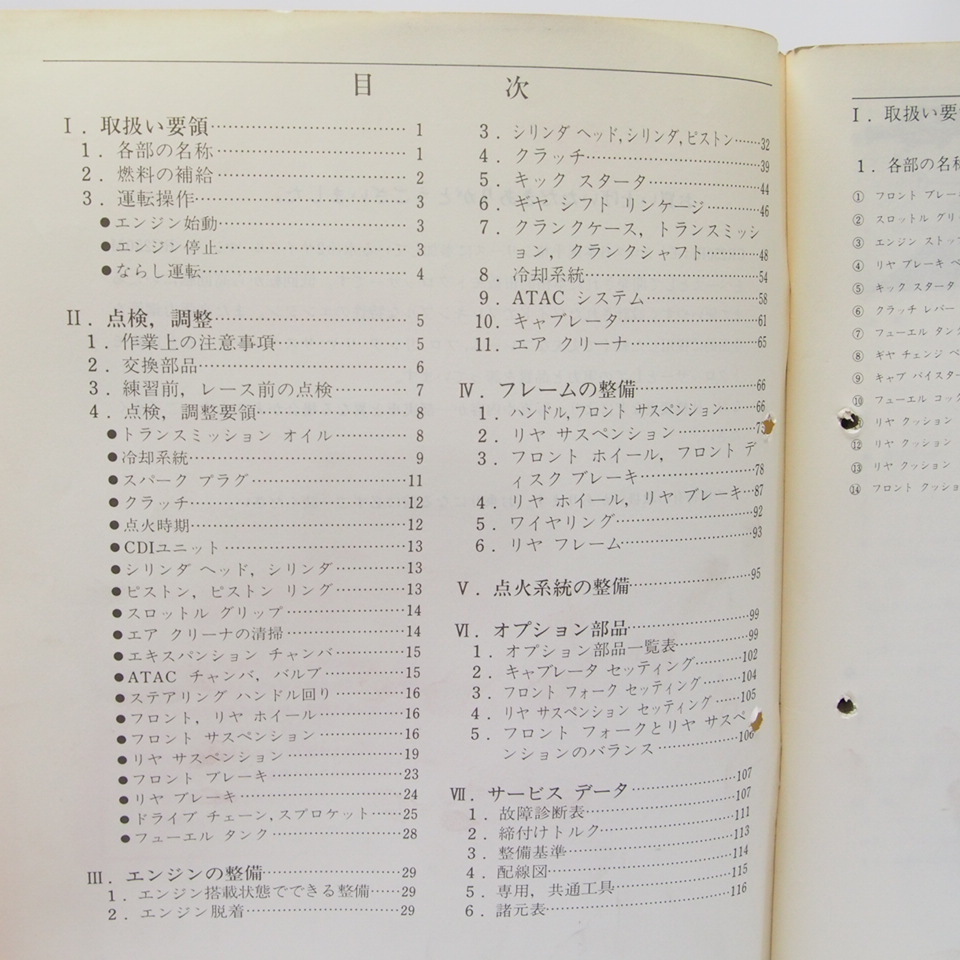 目次
Ⅰ．取扱い要領……1
1．各部の名称……1
2．燃料の補給……2
3．運転操作……3
●エンジン始動……3
●エンジン停止……3
●ならし運転……4
Ⅱ．点検，調整……5
1．作業上の注意事項……5
2．交換部品……6
3．練習前，レース前の点検……7
4．点検，調整要領……8
●トランスミッション オイル……8
●冷却系統……9
●スパーク プラグ……11
●クラッチ……12
●点火時期……12
●CDIユニット……13
●シリンダ ヘッド，シリンダ……13
●ピストン，ピストン リング……13
●スロットル グリップ……14
●エア クリーナの清掃……14
●エキスパンション チャンバ……15
●ATAC チャンバ，バルブ……15
●ステアリング ハンドル回り……16
●フロント，リヤ ホイール……16
●フロント サスペンション……16
●リヤ サスペンション……19
●フロント ブレーキ……23
●リヤ ブレーキ……24
●ドライブ チェーン，スプロケット……25
●フューエル タンク……28
Ⅲ．エンジンの整備……29
1．エンジン搭載状態でできる整備……29
2．エンジン脱着……29
3．シリンダ ヘッド，シリンダ，ピストン……32
4．クラッチ……39
5．キック スタータ……44
6．ギヤ シフト リンケージ……46
7．クランクケース，トランスミッシ
ョン，クランクシャフト……48
8．冷却系統……54
9．ATAC システム……58
10．キャブレータ……61
11．エア クリーナ……65
Ⅳ．フレームの整備……66
1．ハンドル，フロント サスペンション……66
2．リヤ サスペンション……75
3．フロント ホイール，フロント デ
ィスク ブレーキ……78
4．リヤ ホイール，リヤ ブレーキ……87
5．ワイヤリング……92
6．リヤ フレーム……93
Ⅴ．点火系統の整備……95
Ⅵ．オプション部品……99
1．オプション部品一覧表……99
2．キャブレータ セッティング……102
3．フロント フォーク セッティング……104
4．リヤ サスペンション セッティング……105
5．フロント フォークとリヤ サスペ
ンションのバランス……106
Ⅶ．サービス データ……107
1．故障診断表……107
2．締付けトルク……111
3．整備基準……113
4．配線図……114
5．専用，共通工具……115
6．諸元表……116
Ⅰ．取扱い要
1．各部の名称
① フロント ブレーキ
② スロットル グリ
③ エンジン ストッ
④ リヤ ブレーキ ペ
⑤ キック スタータ
⑥ クラッチ レバー
⑦ フューエル タンク
⑧ ギヤ チェンジ ペ
⑨ キャブ バイスター
⑩ フューエル コック
リヤ クッション
⑫ リヤ クッション
⑬ リヤ クッション
⑭ フロント クッショ